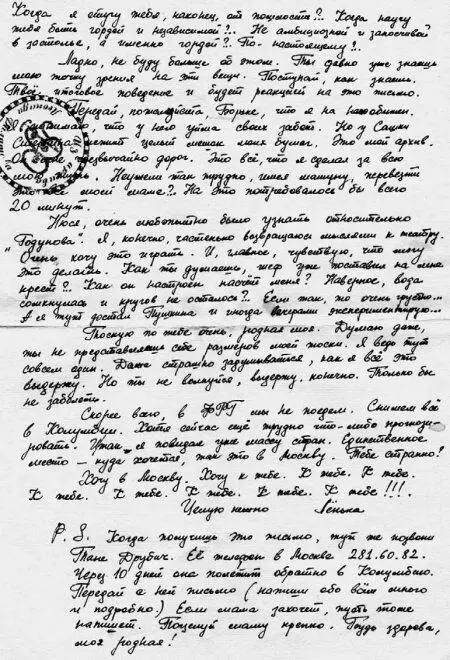 Когда я отучу тебя, наконец, от пошлости?! Когда научу
тебя быть гордой и независимой?.. Не амбициозной и заносчивой
в застолье, а именно гордой?. По-настоящему?..
Ладно, не буду больше об этом. Ты давно уже знаешь
мою точку зрения на эти вещи. Поступай, как знаешь.
Твоё итоговое поведение и будет реакцией на это письмо.
Передай, пожалуйста, Борьке, что я на него обижен.
Я понимаю, что у него уйма своих забот. Но у Сашки
лежит целый мешок моих бумаг. Это мой архив.
Он мне чрезвычайно дорог. Это всё, что я сделал за всю
мою жизнь. Неужели так трудно, имея машину, перевезти
это всё моей маме?.. На это потребовалось бы всего
20 минут.
Нюся, очень любопытно было узнать относительно
"Годунова". Я, конечно, частенько возвращаюсь мыслями к театру.
Очень хочу это играть. И, главное, чувствую, что могу
это делать. Как ты думаешь, шеф уже поставил на мне
крест?.. Как он настроен насчёт меня? Наверное, вода
сомкнулась и кругов не осталось?.. Если так, то очень грустно...
А я тут достал Пушкина и иногда вечерами экспериментирую...
Тоскую по тебе очень, родная моя. Думаю даже,
ты не представляешь себе размеров моей тоски. Я ведь тут
совсем один. Даже страшно задумываться, как я всё это
выдержу. Но ты не волнуйся, выдержу, конечно. Только бы
не заболеть.
Скорее всего, в ФРГ мы не поедем. Снимем всё
в Колумбии. Хотя сейчас ещё трудно что-либо прогнози-
ровать. Итак, я повидал уже массу стран. Единственное
место – куда хочется, так это в Москву. Тебе странно?
Хочу в Москву. Хочу к тебе. К тебе. К тебе.
К тебе. К тебе. К тебе. К тебе. К тебе!!!.
Целую нежно Лёнька
P.S. Когда получишь это письмо, тут же позвони
Тане Друбич. Её телефон в Москве 281.60.82.
Через 10 дней она полетит обратно в Колумбию.
Передай с ней письмо (напиши обо всём много
и подробно.) Если мама захочет, пусть тоже
напишет. Поцелуй маму крепко. Будь здорова,
моя родная!